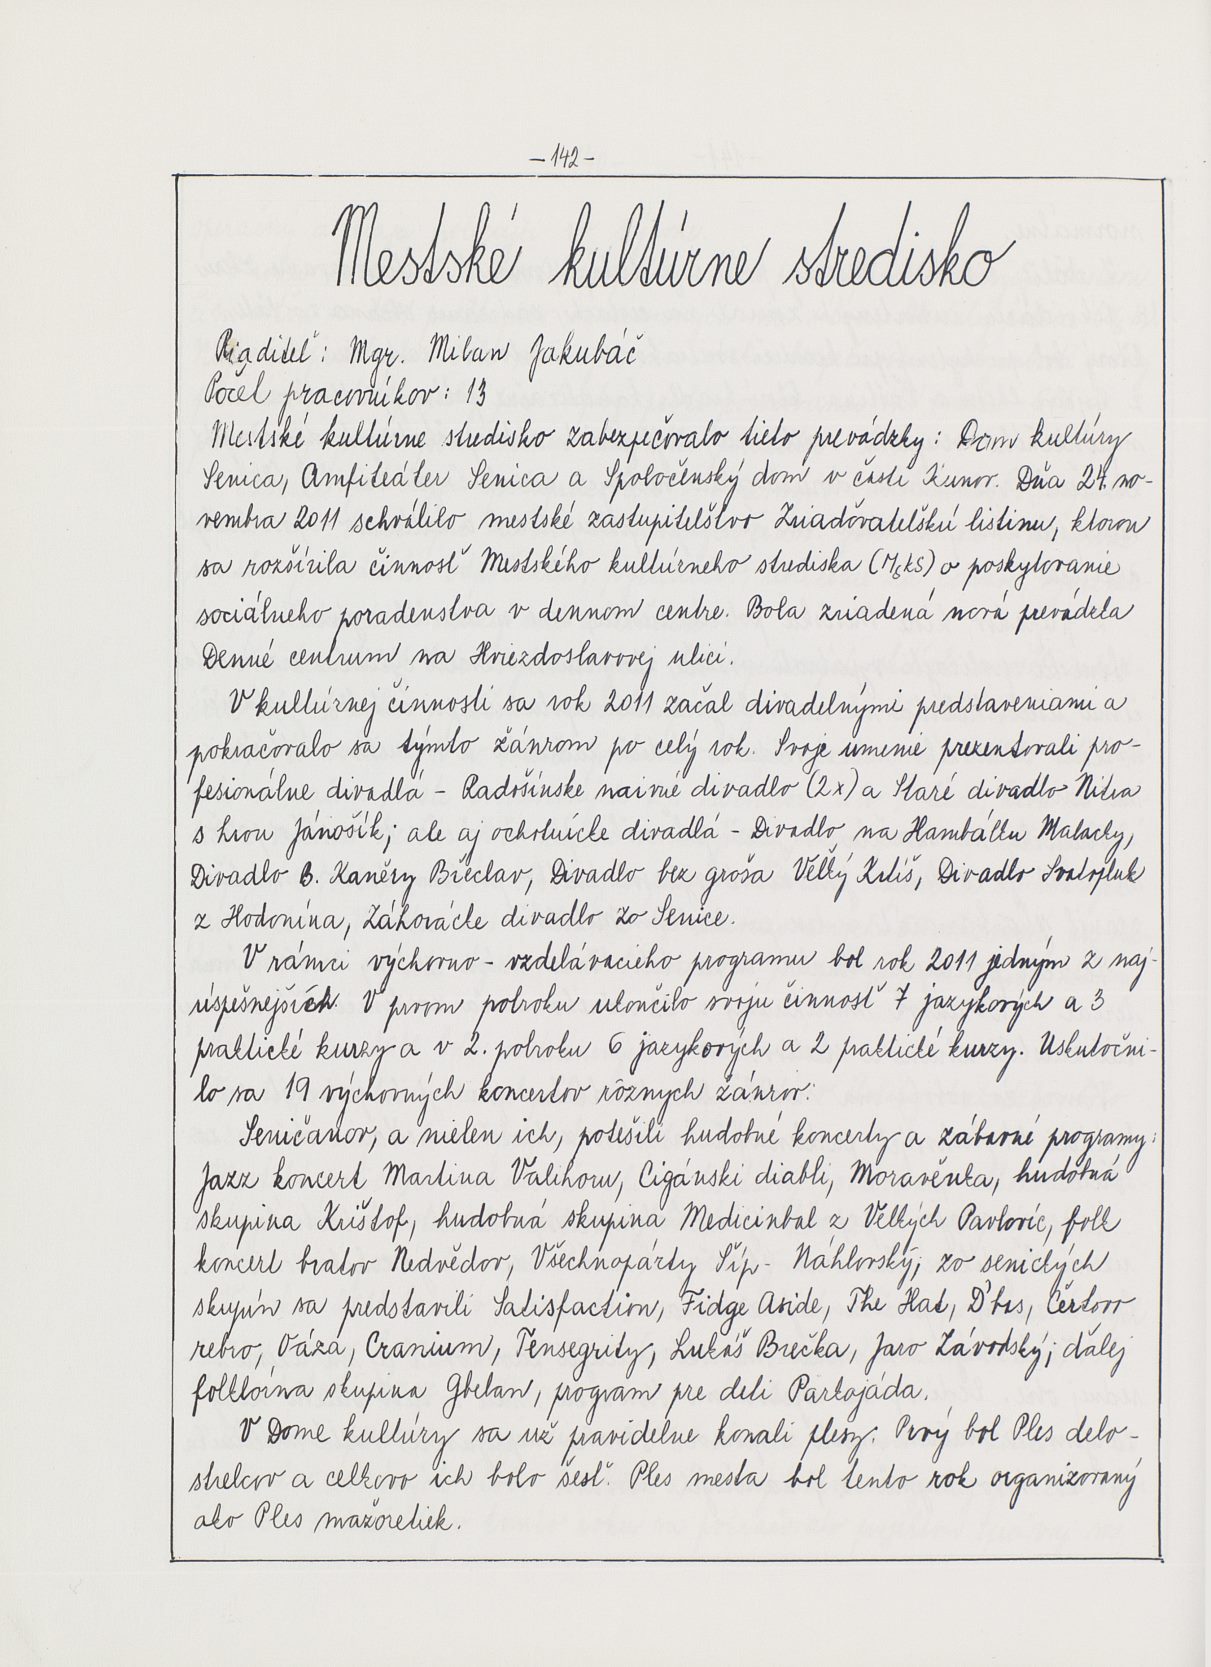 -142-
Mestské kultúrne stredisko
Riaditeľ: Mgr. Milan Jakubáč
Počet pracovníkov: 13
Mestské kultúrne stredisko zabezpečovalo tieto prevádzky: Dom kultúry
Senica, Amfiteáter Senica a Spoločenský dom v časti Kunov. Dňa 24. no-
vembra 2011 schválilo mestské zastupiteľstvo Zriaďovateľskú listinu, ktorou
sa rozšírila činnosť Mestského kultúrneho strediska (MsKS) o poskytovanie
sociálneho poradenstva v dennom centre. Bola zriadená nová prevádzka
Denné centrum na Hviezdoslavovej ulici.
V kultúrnej činnosti sa rok 2011 začal divadelnými predstaveniami a
pokračovalo sa týmto žánrom po celý rok. Svoje umenie prezentovali pro-
fesionálne divadlá - Radošinske naivné divadlo (2x) a Staré divadlo Nitra
s hrou Jánošík; ale aj ochotnícke divadlá - Divadlo na Hambálku Malacky,
Divadlo B. Kaněry Břeclav, Divadlo bez groša Veľký Krtíš, Divadlo Svatopluk
z Hodonína, Záhorácke divadlo zo Senice.
V rámci výchovno-vzdelávacieho programu bol rok 2011 jedným z naj-
úspešnejších. V prvom polroku ukončilo svoju činnosť 7 jazykových a 3
praktické kurzy a v 2. polroku 6 jazykových a 2 praktické kurzy. Uskutočni-
lo sa 19 výchovných koncertov rôznych žánrov.
Seničanov, a nielen ich, potešili hudobné koncerty a zábavné programy:
Jazz koncert Martina Valihoru, Cigánski diabli, Moravěnka, hudobná
skupina Krištof, hudobná skupina Medicinbal z Velkých Pavlovíc, folk
koncert bratov Nedvědov, Všechnopárty Šíp - Náhlovský; zo senických
skupín sa predstavili Satisfaction, Fidge Aside, The Hat, D'bas, Čertovo
rebro, Oáza, Cranium, Tensegrity, Lukáš Brečka, Jaro Závodský; ďalej
folklórna skupina Gbelan, program pre deti Parkojáda.
V Dome kultúry sa už pravidelne konali plesy. Prvý bol Ples delo-
strelcov a celkovo ich bolo šesť. Ples mesta bol tento rok organizovaný
ako Ples mažoretiek.